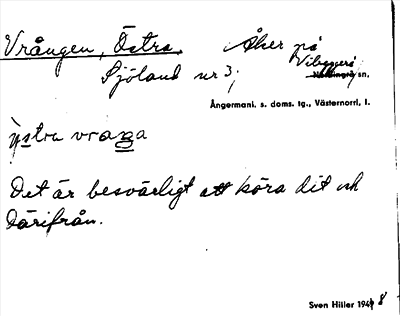 Vrången, Östra. Åker på
Sjöland nr 3; Vibyggerå sn,
Ångermanl. s. doms. tg., Västernorrl. l.
östra vraŋa
Det är besvärligt att köra dit och
därifrån.
Sven Hiller 1948